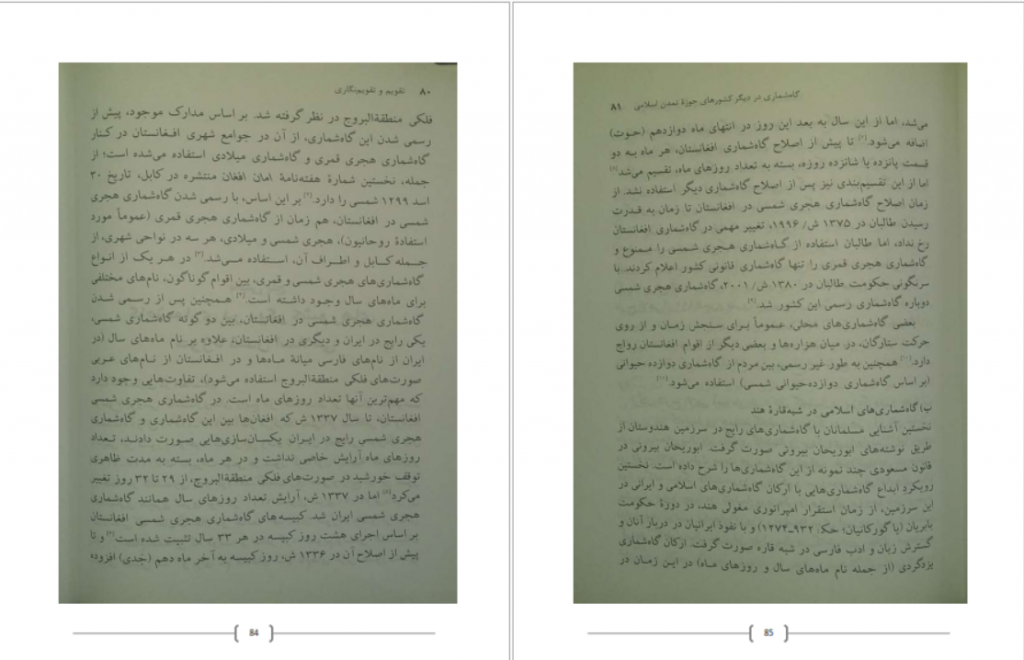 ۸۰ تقویم و تقویم‌نگاری
فلکی منطقةالبروج در نظر گرفته شد. بر اساس مدارک موجود، پیش از
رسمی شدن این گاه‌شماری، از آن در جوامع شهری افغانستان در کنار
گاه‌شماری هجری قمری و گاه‌شماری میلادی استفاده می‌شده است؛ از
جمله، نخستین شمارهٔ هفته‌نامهٔ امان افغان منتشره در کابل، تاریخ ۳۰
اسد ۱۲۹۹ شمسی را دارد.(۲) بر این اساس، با رسمی شدن گاه‌شماری هجری
شمسی در افغانستان، هم زمان از گاه‌شماری هجری قمری (عموماً مورد
استفادهٔ روحانیون)، هجری شمسی و میلادی، هر سه در نواحی شهری، از
جمله کابل و اطراف آن، استفاده می‌شد.(۳) در هر یک از انواع
گاه‌شماری‌های هجری شمسی و قمری، بین اقوام گوناگون، نام‌های مختلفی
برای ماه‌های سال وجود داشته است.(۴) همچنین پس از رسمی شدن
گاه‌شماری هجری شمسی در افغانستان، بین دو گونه گاه‌شماری شمسی،
یکی رایج در ایران و دیگری در افغانستان، علاوه بر نام ماه‌های سال (در
ایران از نام‌های فارسی میانهٔ ماه‌ها و در افغانستان از نام‌های عربی
صورت‌های فلکی منطقةالبروج استفاده می‌شود)، تفاوت‌هایی وجود دارد
که مهم‌ترین آنها تعداد روزهای ماه است. در گاه‌شماری هجری شمسی
افغانستان، تا سال ۱۳۳۷ ش که افغان‌ها بین این گاه‌شماری و گاه‌شماری
هجری شمسی رایج در ایران یکسان‌سازی‌هایی صورت دادند، تعداد
روزهای ماه آرایش خاصی نداشت و در هر ماه، بسته به مدت ظاهری
توقف خورشید در صورت‌های فلکی منطقةالبروج، از ۲۹ تا ۳۲ روز تغییر
می‌کرد.(۵) اما در ۱۳۳۷ ش، آرایش تعداد روزهای سال همانند گاه‌شماری
هجری شمسی ایران شد. کبیسه‌های گاه‌شماری هجری شمسی افغانستان
بر اساس اجرای هشت روز کبیسه در هر ۳۳ سال تثبیت شده است(۶) و تا
پیش از اصلاح آن در ۱۳۳۶ ش، روز کبیسه به آخر ماه دهم (جَدی) افزوده
84
گاه‌شماری در دیگر کشورهای حوزهٔ تمدن اسلامی ۸۱
می‌شد، اما از این سال به بعد این روز در انتهای ماه دوازدهم (حوت)
اضافه می‌شود.(۷) تا پیش از اصلاح گاه‌شماری افغانستان، هر ماه به دو
قسمت پانزده یا شانزده روزه، بسته به تعداد روزهای ماه، تقسیم می‌شد.(۸)
اما از این تقسیم‌بندی نیز پس از اصلاح گاه‌شماری دیگر استفاده نشد. از
زمان اصلاح گاه‌شماری هجری شمسی در افغانستان تا زمان به قدرت
رسیدن طالبان در ۱۳۷۵ ش/ ۱۹۹۶، تغییر مهمی در گاه‌شماری افغانستان
رخ نداد، اما طالبان استفاده از گاه‌شماری هجری شمسی را ممنوع و
گاه‌شماری هجری قمری را تنها گاه‌شماری قانونی کشور اعلام کردند. با
سرنگونی حکومت طالبان در ۱۳۸۰ ش/ ۲۰۰۱، گاه‌شماری هجری شمسی
دوباره گاه‌شماری رسمی این کشور شد.(۹)
بعضی گاه‌شماری‌های محلی، عموماً برای سنجش زمان و از روی
حرکت ستارگان، در میان هزاره‌ها و بعضی دیگر از اقوام افغانستان رواج
دارد.(۱۰) همچنین به طور غیر رسمی، بین مردم از گاه‌شماری دوازده حیوانی
(بر اساس گاه‌شماری دوازده‌حیوانی شمسی) استفاده می‌شود.(۱۱)
ب) گاه‌شماری‌های اسلامی در شبه‌قارهٔ هند
نخستین آشنایی مسلمانان با گاه‌شماری‌های رایج در سرزمین هندوستان از
طریق نوشته‌های ابوریحان بیرونی صورت گرفت. ابوریحان بیرونی در
قانون مسعودی چند نمونه از این گاه‌شماری‌ها را شرح داده است. نخستین
رویکرد ابداع گاه‌شماری‌هایی با ارکان گاه‌شماری‌های اسلامی و ایرانی در
این سرزمین، از زمان استقرار امپراتوری مغولی هند، در دورهٔ حکومت
بابریان (یا گورکانیان؛ حک: ۹۳۲ـ۱۲۷۴) و با نفوذ ایرانیان در دربار آنان و
گسترش زبان و ادب فارسی در شبه قاره صورت گرفت. ارکان گاه‌شماری
یزدگردی (از جمله نام ماه‌های سال و روزهای ماه) در این زمان در
85